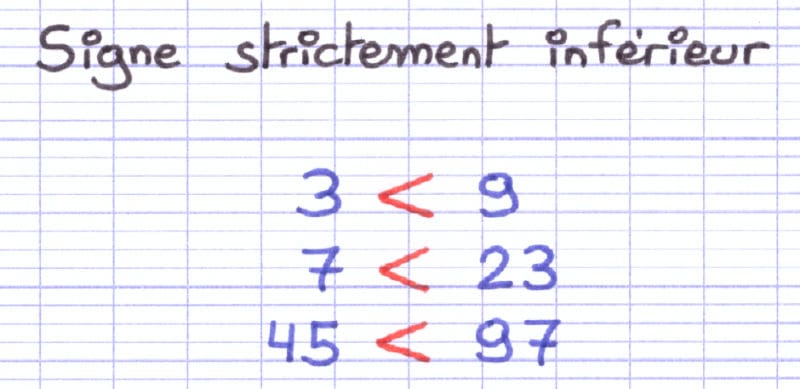 Signe strictement inférieur
3 < 9
7 < 23
45 < 97